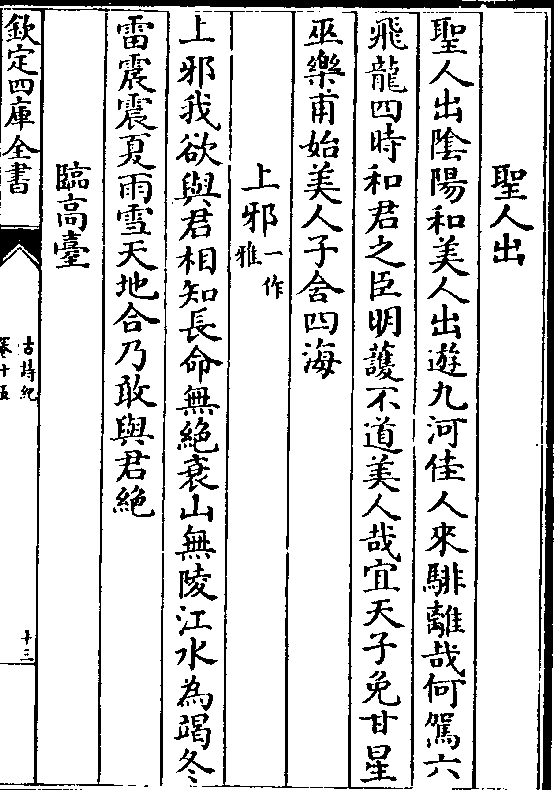 聖人出
聖人出陰陽和美人出遊九河佳人來騑離哉何駕六
飛龍四時和君之臣明護不道美人哉宜天子免甘星
巫樂甫始美人子含四海
上邪一作雅
上邪我欲與君相知長命無絶衰山無陵江水為竭冬
雷震震夏雨雪天地合乃敢與君絶
臨高臺
欽定四庫全書
古詩紀
卷十五
十三